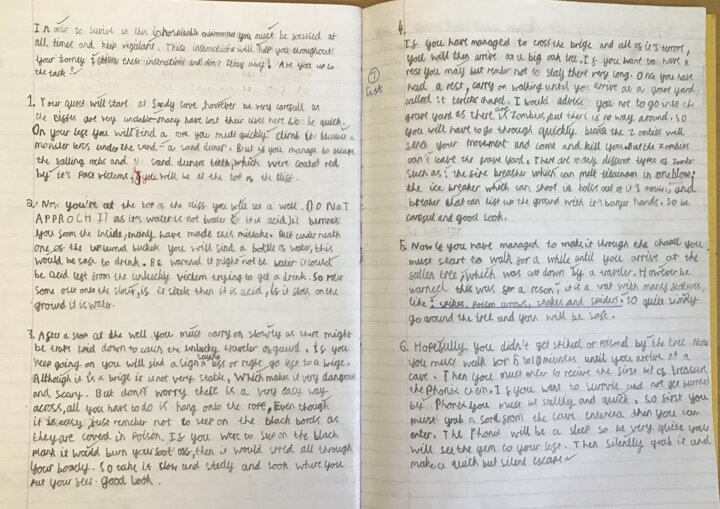 In order to survive in this inhospitable environment you must be focused at
all times and keep vigilant. These instructions will help you throughout
your Jorney; follow these instructions and don't stray away! Are you up to
the task?
1. Your quest will start at Sandy Cove, however be very carfull as
the cliffes are very unstable-many have lost their lives here so be quick.
On your left you will find a rope you must quickly climb this because a
monster lives under the sand - a sand duner. But if you manage to escape
the falling rocks and the sand duners teeth, which were coated red
by it's past victems, you will be at the top of the cliff.
2. Now you're at the top of the cliff you will see a well. DO NOT
APPROCH IT as it's water is not water it is acid, it burnes
you from the inside, many have made this mistake. But underneath
one of the upturned buckets you will find a bottle of water, this
would be safe to drink. Be warned it might not be water it could
be acid left from the unlucky victem trying to get a drink. So pour
some out onto the floor, if it sizels then it is acid, if it stays on the
ground it is water.
3. After a stop at the well you must carry on slowly as there might
be traps laid down to catch the unlucky traveler off gaurd. If you
keep going on you will find a sign saying left or right, go left to a brige.
Although it is a brige it is not very stable, which makes it very dangerous
and scary. But don't worry there is a very easy way
across, all you have to do is hang onto the rope, Even though
it is easy just remeber not to step on the black bords as
they are coverd in Poison. If you were to step on the black
plank it would burn your foot off, then it would spred all through
your boady. So take it slow and stedy and look where you
put your feet. Good look.
4.
If you have managed to cross the brige and all of it's terrors,
you will then arrive at a big oak tree. If you want to have a
rest you may but remember not to stay there very long. Once you have
had a rest, carry on walking until you arrive at a grave yard.
called st chapel. I would advise you not to go into the
grave yard as there are Zombies, but there is no way around. So
you will have to go through quickly because the Zombies will
sense your movement and come and kill you. But the zombies
can't leave the grave yard. There are many diffrent types of Zombie
such as: the fire breather which can melt titaunam in one blow;
the ice breather which can shoot ice balls out of it's mouth; and
breaker that can lift up the ground with it's bare hands. So be
carefull and good look.
List
5. Now if you have managed to make it through the chapel you
must start to walk for a while until you arrive at the
fallen tree, which was cut down by a traveler. However be
warned this was for a reson, it is a trap with many features
like: spikes, poison arrows, snakes and spiders. So quite simply
go around the tree and you will be safe.
6. Hopefully you didn't get spiked or poisond by the tree. Now
you must walk for 5 to 10 minutes until you arrive at a
cave. Then you must enter to receive the first bit of treasure
the Phonix . If you want to survive and not get burned
by Phonix you must be stelthy and quick. So first you
must grab a sord from the cave enterence then you can
enter. The Phonix will be a sleep so be very quite you
will see the gem to your left. Then silently grab it and
make a quick but silent escape.